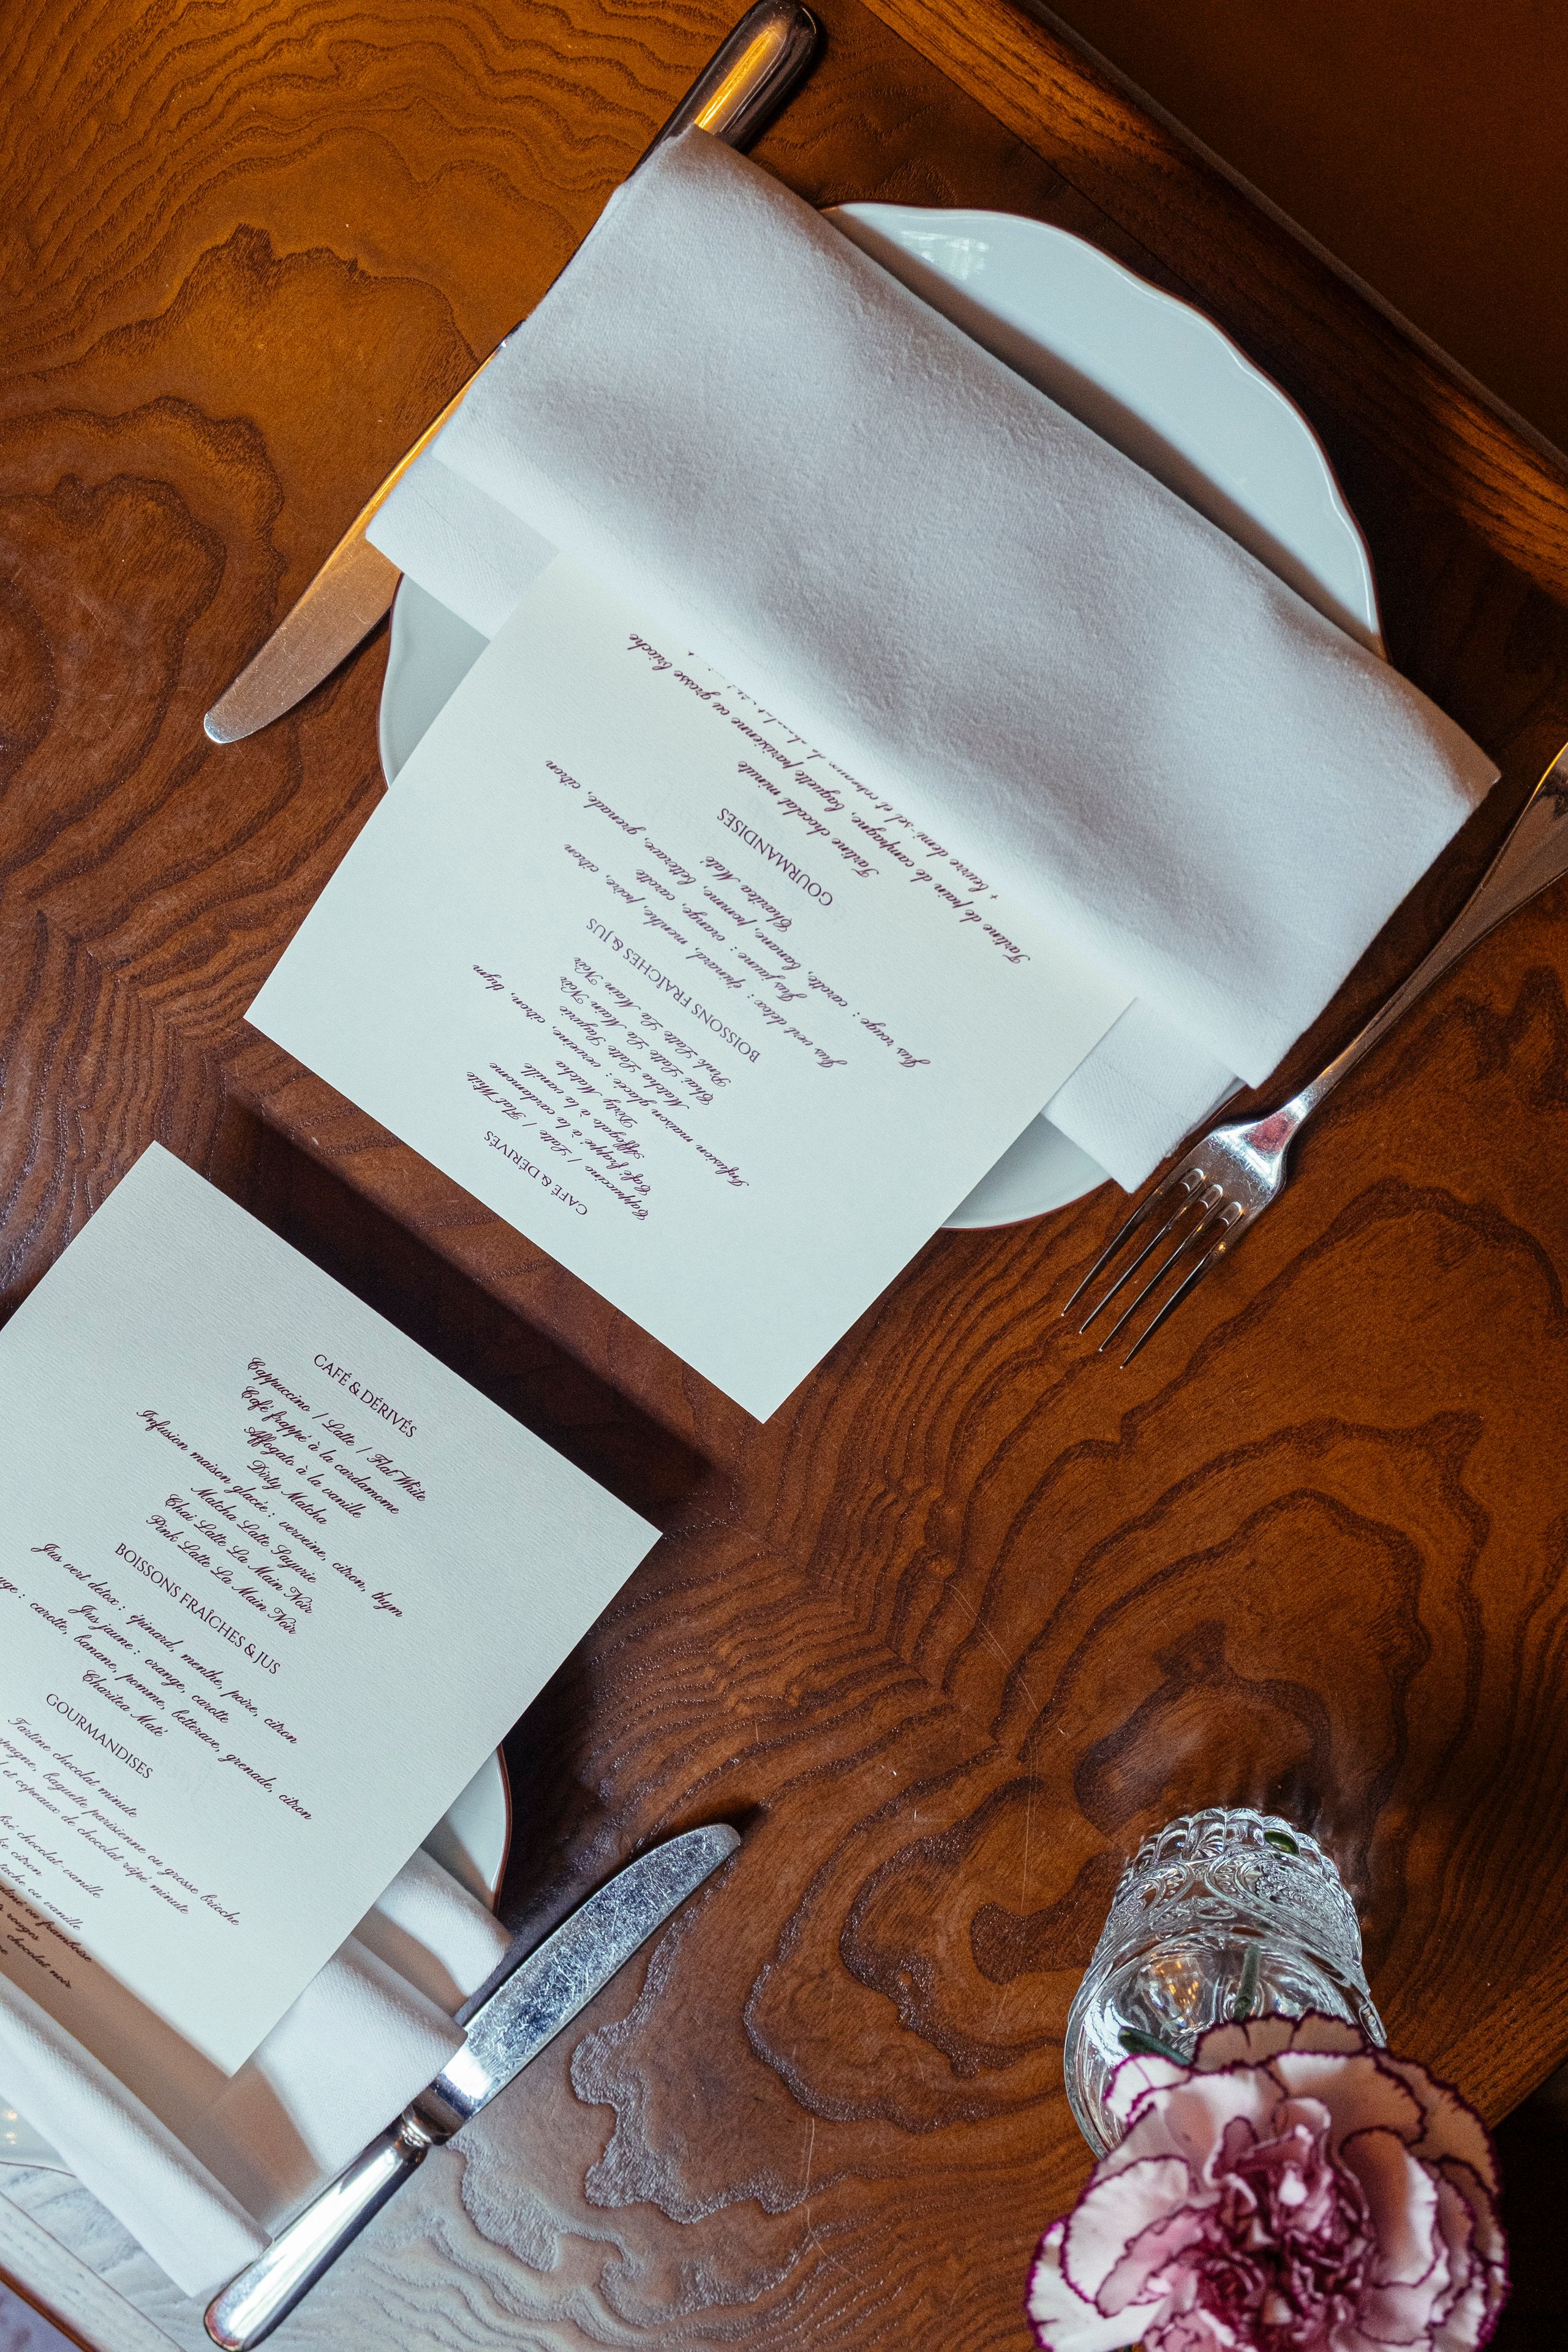 CAFÉ & DÉRIVÉS
Cappuccino / Latte / Flat White
Café frappé à la cardamome
Affogato à la vanille
Dirty Matcha
Infusion maison glacée : verveine, citron, thym
Matcha Latte Sayurie
Chai Latte La Main Noir
Pink Latte La Main Noir
BOISSONS FRAÎCHES & JUS
Jus vert detox : épinard, menthe, poire, citron
Jus jaune : orange, carotte
Jus rouge : carotte, banane, pomme, betterave, grenade, citron
Charitea Maté
GOURMANDISES
Tartine chocolat minute
Tartine de pain de campagne, baguette parisienne ou grosse brioche
+ beurre demi-sel et copeaux de chocolat
CAFÉ & DÉRIVÉS
Cappuccino / Latte / Flat White
Café frappé à la cardamome
Affogato à la vanille
Dirty Matcha
Infusion maison glacée : verveine, citron, thym
Matcha Latte Sayurie
Chai Latte La Main Noir
Pink Latte La Main Noir
BOISSONS FRAÎCHES & JUS
Jus vert detox : épinard, menthe, poire, citron
Jus jaune : orange, carotte
: carotte, banane, pomme, betterave, grenade, citron
Charitea Maté
GOURMANDISES
Tartine chocolat minute
baguette parisienne ou grosse brioche
et copeaux de chocolat râpé minute
chocolat vanille
citron vanille
ou vanille
ou framboise
rouges
chocolat noir